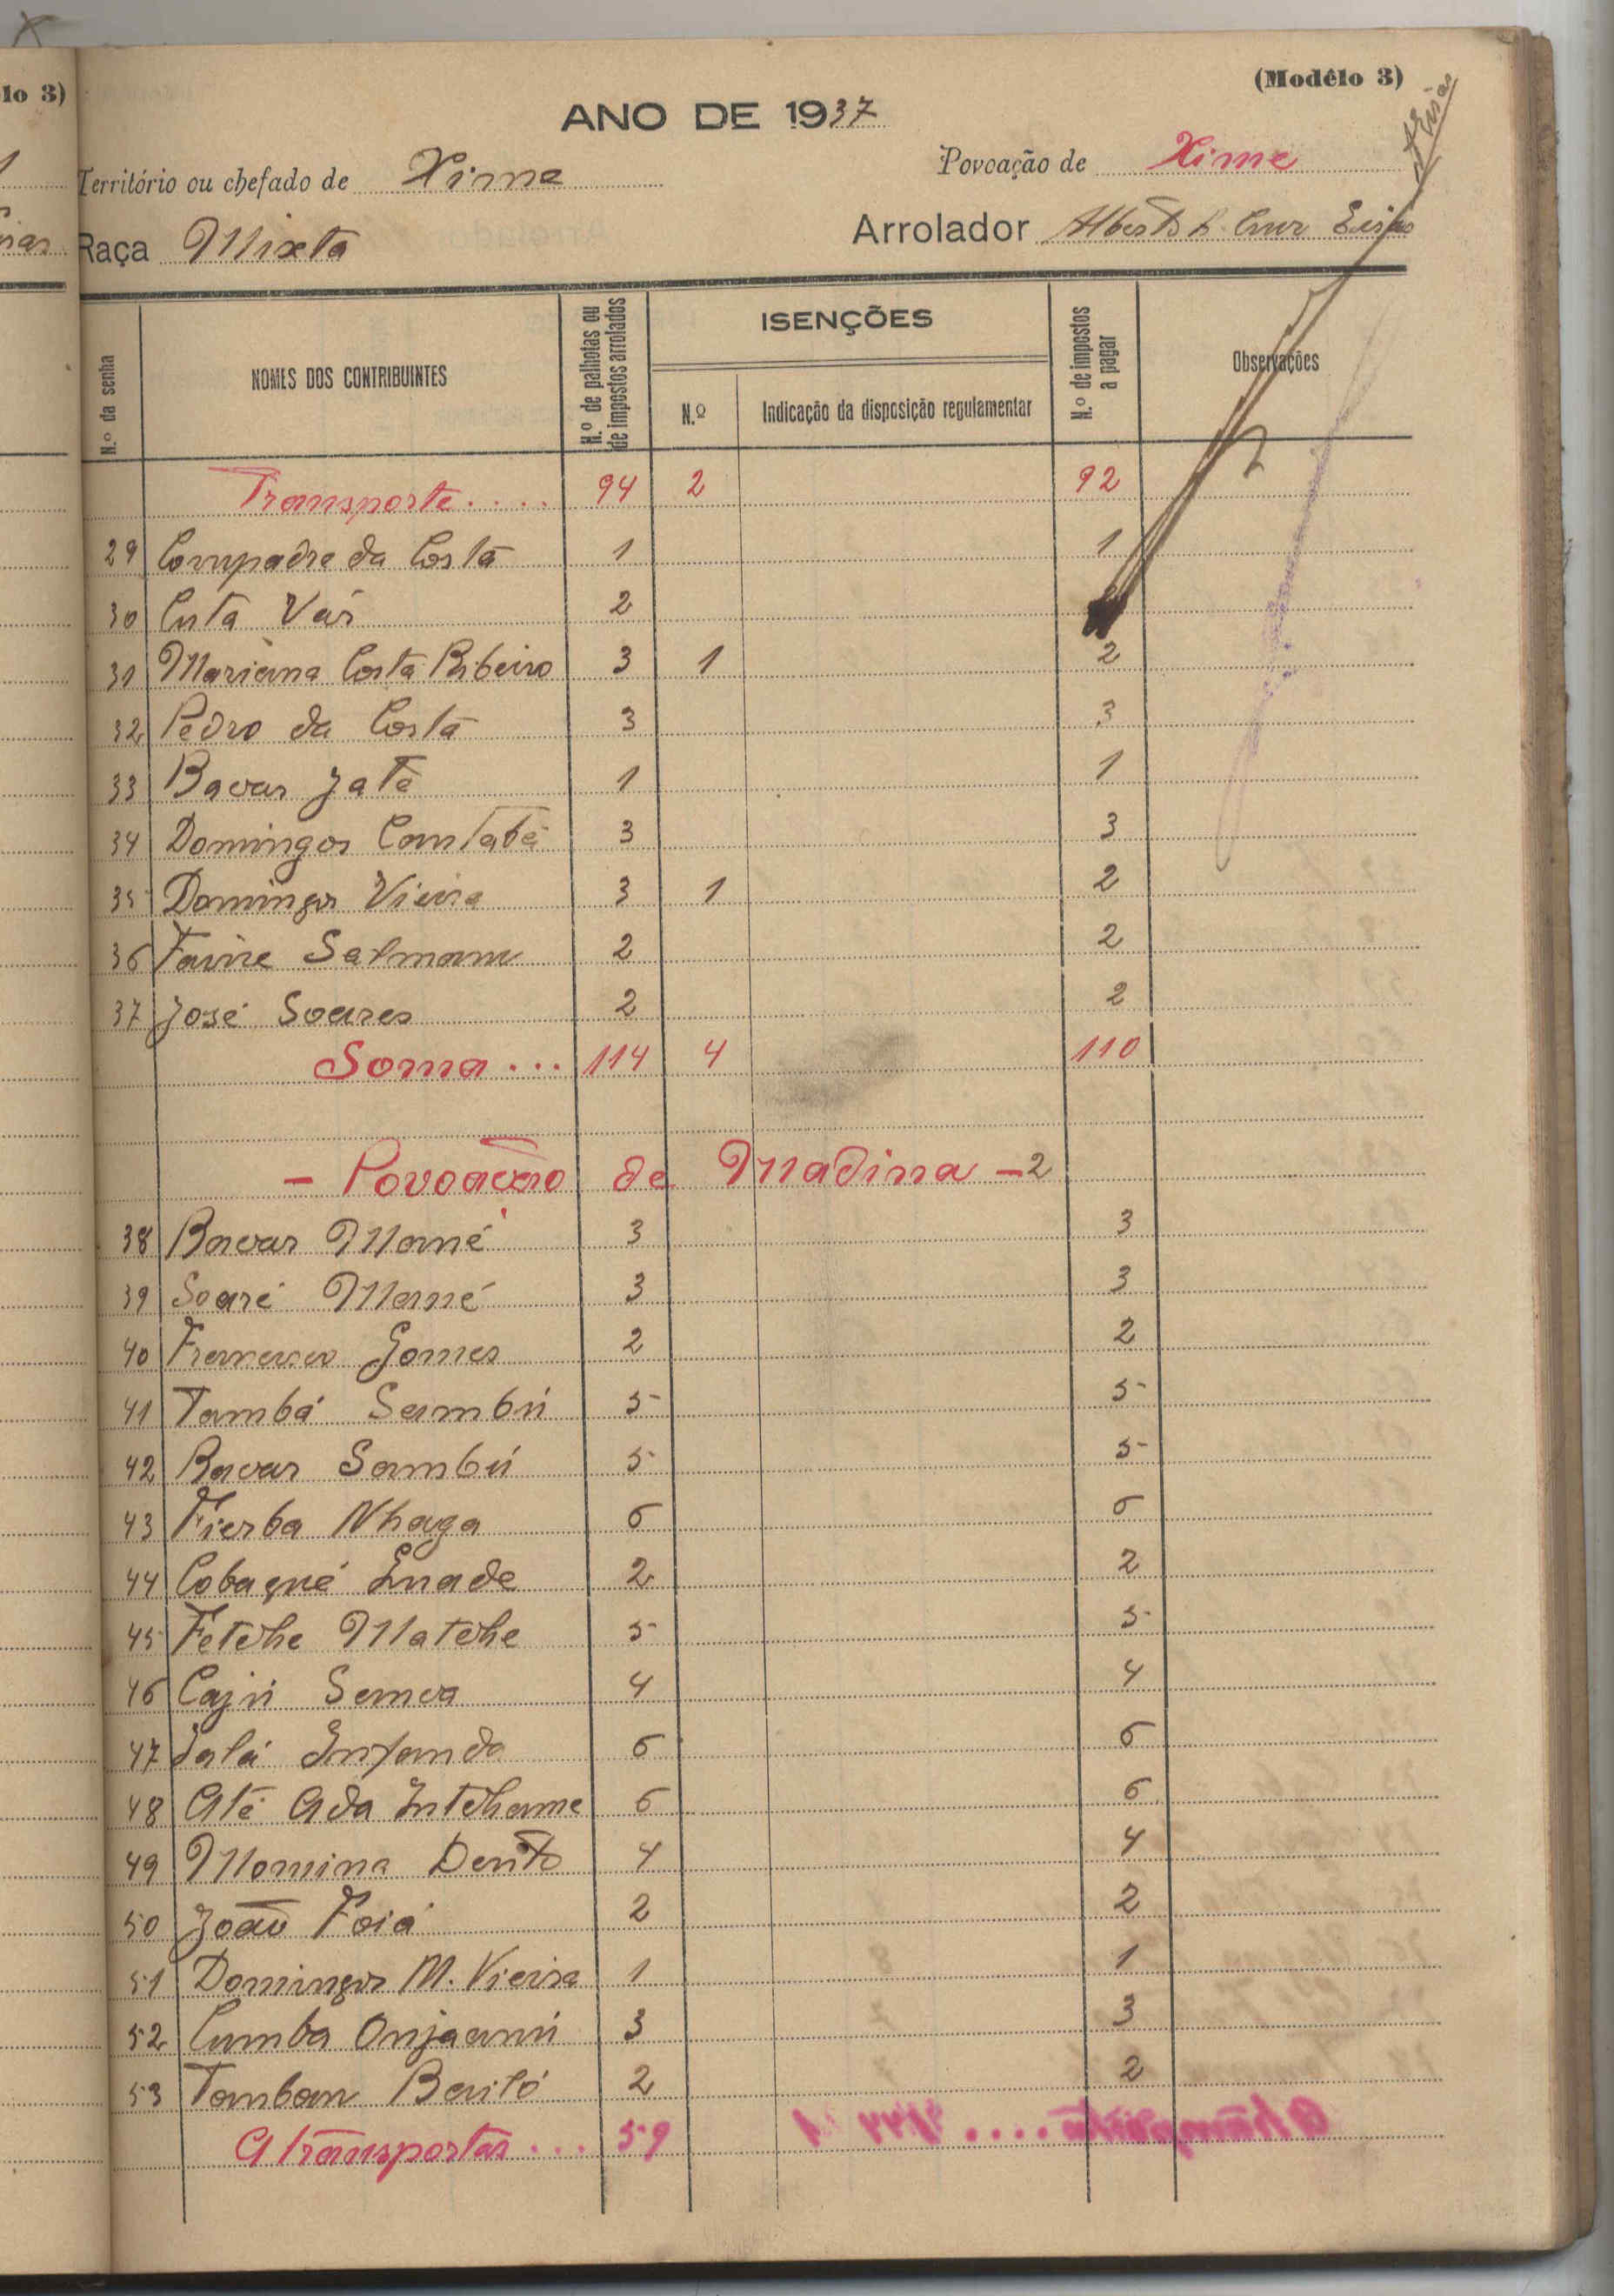 lo 3)
(Modêlo 3)
ANO DE 1937
Território ou chefado de Xime
Povoação de Xime
Raça Mixta
Arrolador Alberto L. Cruz
N.º da senha
NOMES DOS CONTRIBUINTES
N.º de palhotas ou de impostos arrolados
ISENÇÕES
N.º
Indicação da disposição regulamentar
N.º de impostos a pagar
Observações
Transporte.... 94 2 92
29 Compadre da Costa 1 1
30 Cuta Vás 2
31 Mariana Costa Ribeiro 3 1 2
32 Pedro da Costa 3 3
33 Bacar Jatè 1 1
34 Domingos Comtabè 3 3
35 Domingos Vieira 3 1 2
36 Faine Salmame 2 2
37 José Soares 2 2
Soma... 114 4 110
- Povoação de Madina - 2
38 Bacar Mané 3 3
39 Soaré Mané 3 3
40 Francisco Gomes 2 2
41 Tambá Sambú 5 5
42 Bacar Sambú 5 5
43 Fierba Nhaga 6 6
44 Cobaqué Inade 2 2
45 Fetche Matche 5 5
46 Cajú Semca 4 4
47 Salá Infanda 6 6
48 Até Ada Intchame 6 6
49 Momina Dento 4 4
50 João Foiá 2 2
51 Domingos M. Vieira 1 1
52 Cumba Onjaanú 3 3
53 Tamban Bariló 2 2
A transportar... 59